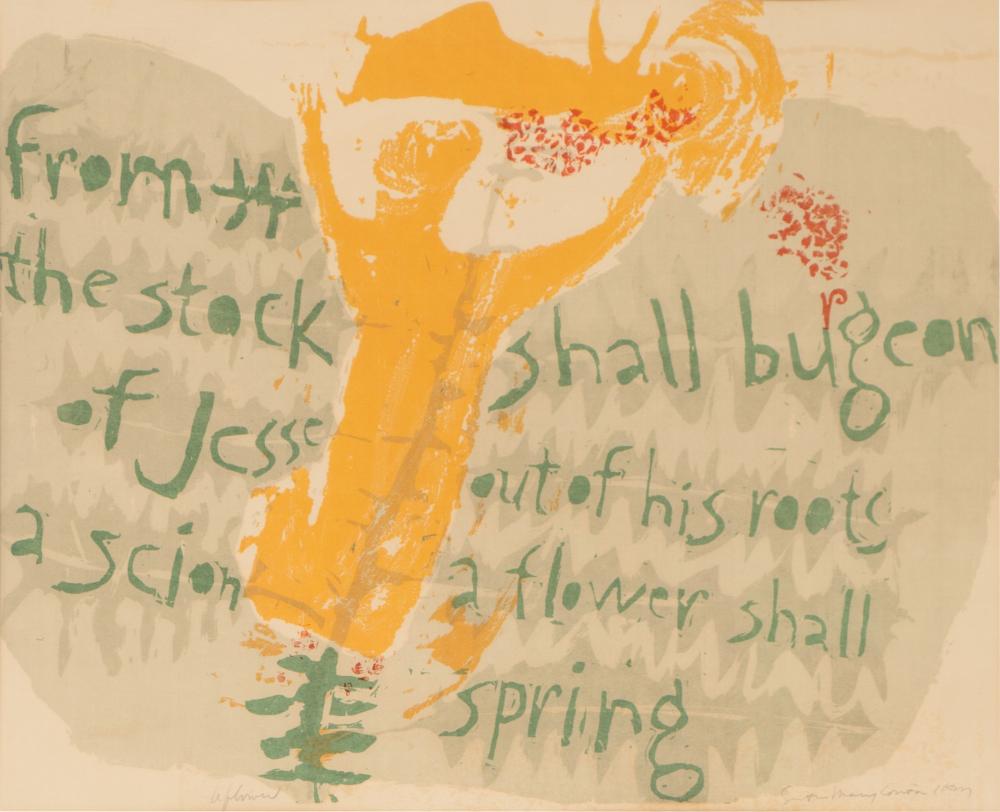 from
the stock
of Jesse
a scion
shall burgeon
out of his roots
a flower shall
spring
a flower
Sister Mary Corita IHM